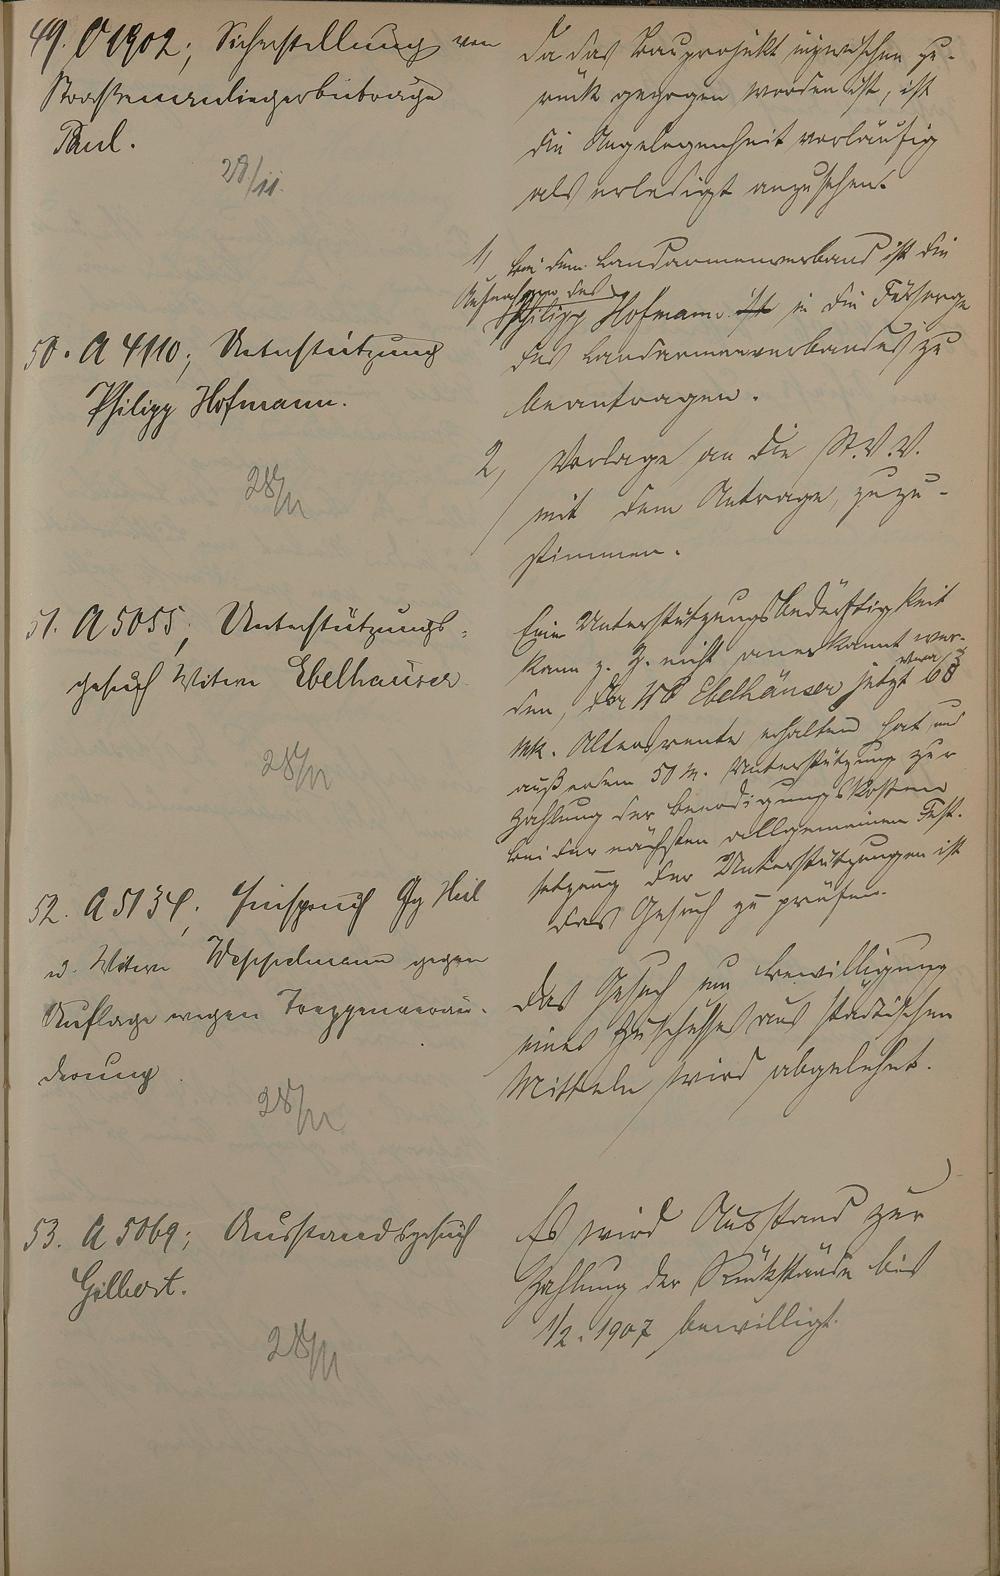 49. O 1902; Sicherstellung von
Strassenanliegerbeiträge
Paul.
28/11.
Da das Bauprojekt inzwischen zu-
rück gezogen worden ist, ist
die Angelegenheit vorläufig
als erledigt anzusehen.
50. A 4110; Unterstützung
Philipp Hofmann.
28/11
1, bei dem Landarmenverband ist die
Aufnahme des
Philipp Hofmann ist in die Fürsorge
des Landarmenverbandes zu
beantragen.
2, Vorlage an die St.V.V.
mit dem Antrage, zuzu-
stimmen.
51. A 5055; Unterstützungs-
gesuch Witwe Ebelhäuser
28/11
Eine Unterstützungsbedürftigkeit
kann z. Z. nicht anerkannt wer-
den, da W. Ebelhäuser jetzt 68
Mk. Altersrente erhalten hat und
außerdem 50 M. Unterstützung zur
Zahlung der Beerdigungskosten
bei der nächsten allgemeinen Fest-
setzung der Unterstützungen ist
das Gesuch zu prüfen.
52. A 5134; Einspruch Gg Heil
u. Witwe Weppelmann gegen
Auflage wegen Treppenverän-
derung
28/11.
Das Gesuch um Bewilligung
eines Zuschusses aus städtischen
Mitteln wird abgelehnt.
53. A 5069; Ausstandsgesuch
Gilbert.
28/11
Es wird Ausstand zur
Zahlung der Rückstände bis
1/2. 1907 bewilligt.